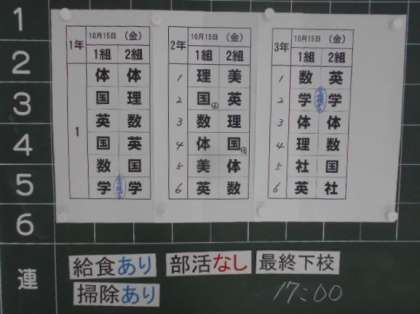 1
2
3
4
5
6
連
1年 10月15日 (金)
1組 2組
体 体
国 理
英 数
1
国 英
数 国
学 学
2年 10月15日 (金)
1組 2組
1 理 美
2 国 英
3 数 理
4 体 国
5 美 体
6 英 数
3年 10月15日 (金)
1組 2組
1 数 英
2 学 学
3 体 体
4 理 数
5 社 国
6 英 社
給食あり 部活なし 最終下校
掃除あり 17:00